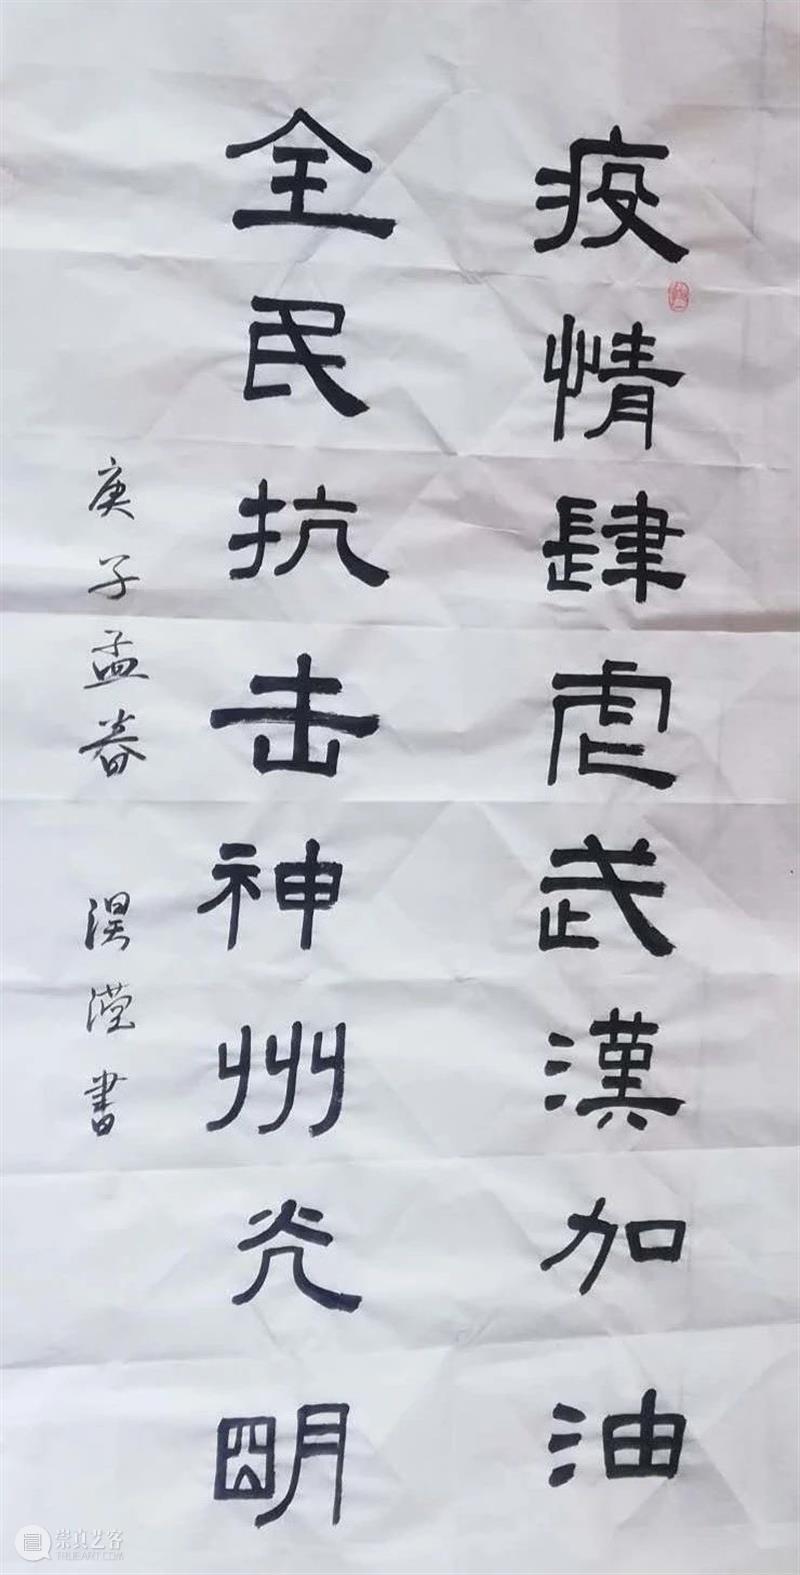 疫情肆虐武漢加油
全民抗击神州光明
庚子孟春 淏滢書
崇真艺客
TRUEART.COM